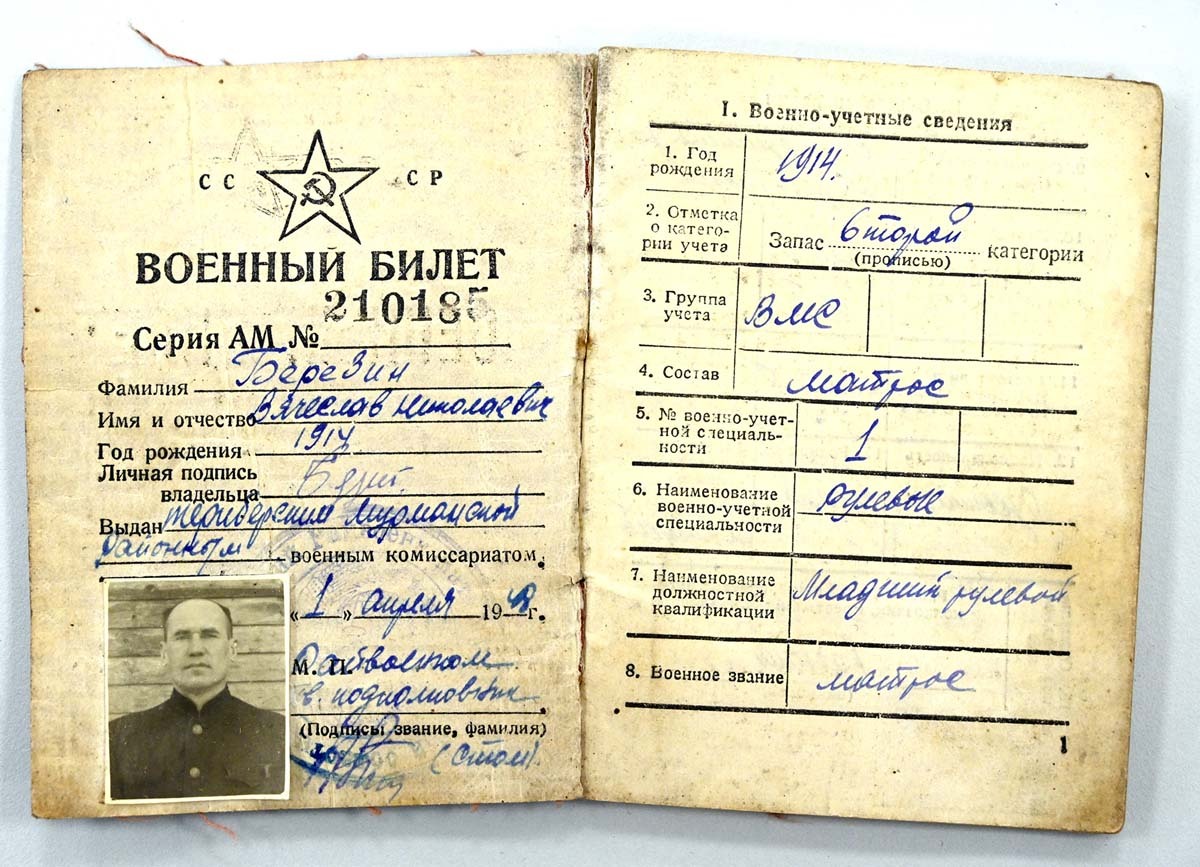 СС СР
ВОЕННЫЙ БИЛЕТ
210185
Серия АМ №
Фамилия Березин
Имя и отчество Вячеслав Николаевич
Год рождения 1914
Личная подпись
владельца
Выдан Териберским Мурманской
районным военным комиссариатом
«1» апреля 1948 г.
М. П. Райвоенком
подполковник
(Подпись, звание, фамилия)
I. Военно-учетные сведения
1. Год
рождения
1914.
2. Отметка
о катего-
рии учета
Запас второй категории
(прописью)
3. Группа
учета
ВМС
4. Состав матрос
5. № военно-учет-
ной специаль-
ности
1
6. Наименование
военно-учетной
специальности
рулевые
7. Наименование
должностной
квалификации
Младший рулевой
8. Военное звание матрос
1